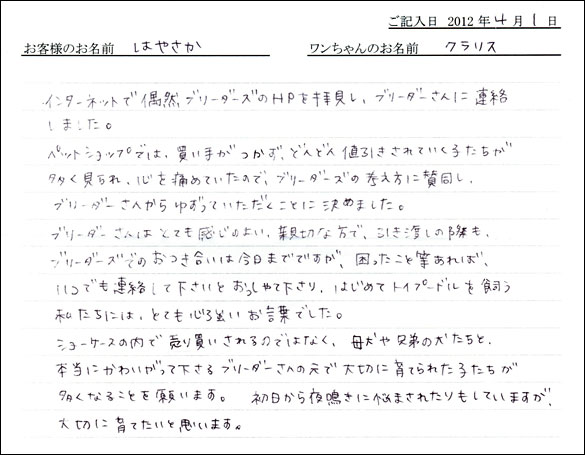 ご記入日 2012年4月1日
お客様のお名前 はやさか ワンちゃんのお名前 クラリス
インターネットで偶然、ブリーダーズのHPを拝見し、ブリーダーさんに連絡
しました。
ペットショップでは、買い手がつかず、どんどん値引きされていく子たちが
多く見られ、心を痛めていたので、ブリーダーズの考え方に賛同し、
ブリーダーさんからゆずっていただくことに決めました。
ブリーダーさんはとても感じのよい、親切な方で、引き渡しの際も、
ブリーダーズでのおつき合いは今日までですが、困ったこと等あれば、
いつでも連絡して下さいとおっしゃて下さり、はじめてトイプードルを飼う
私たちには、とても心強いお言葉でした。
ショーケースの内で売り買いされるのではなく、母犬や兄弟の犬たちと、
本当にかわいがって下さるブリーダーさんの元で大切に育てられた子たちが
多くなることを願います。 初日から夜鳴きに悩まされたりもしていますが、
大切に育てたいと思います。